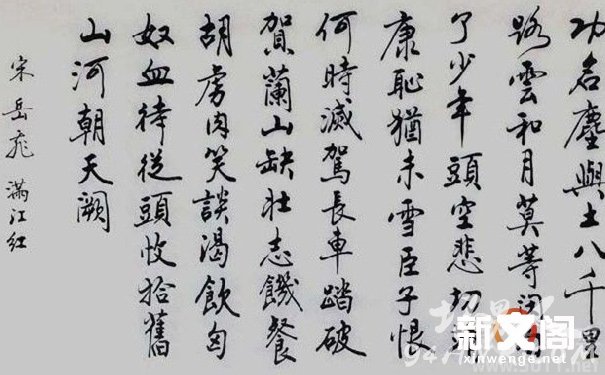 功名塵與土八千里
路雲和月莫等闲
了少年頭空悲切
康恥猶未雪臣子恨
何時滅駕長車踏破
賀蘭山缺壯志饑餐
胡虜肉笑談渴飲匈
奴血待從頭收拾舊
山河朝天闕
宋岳飛 滿江红
新文阁
xinwenge.net